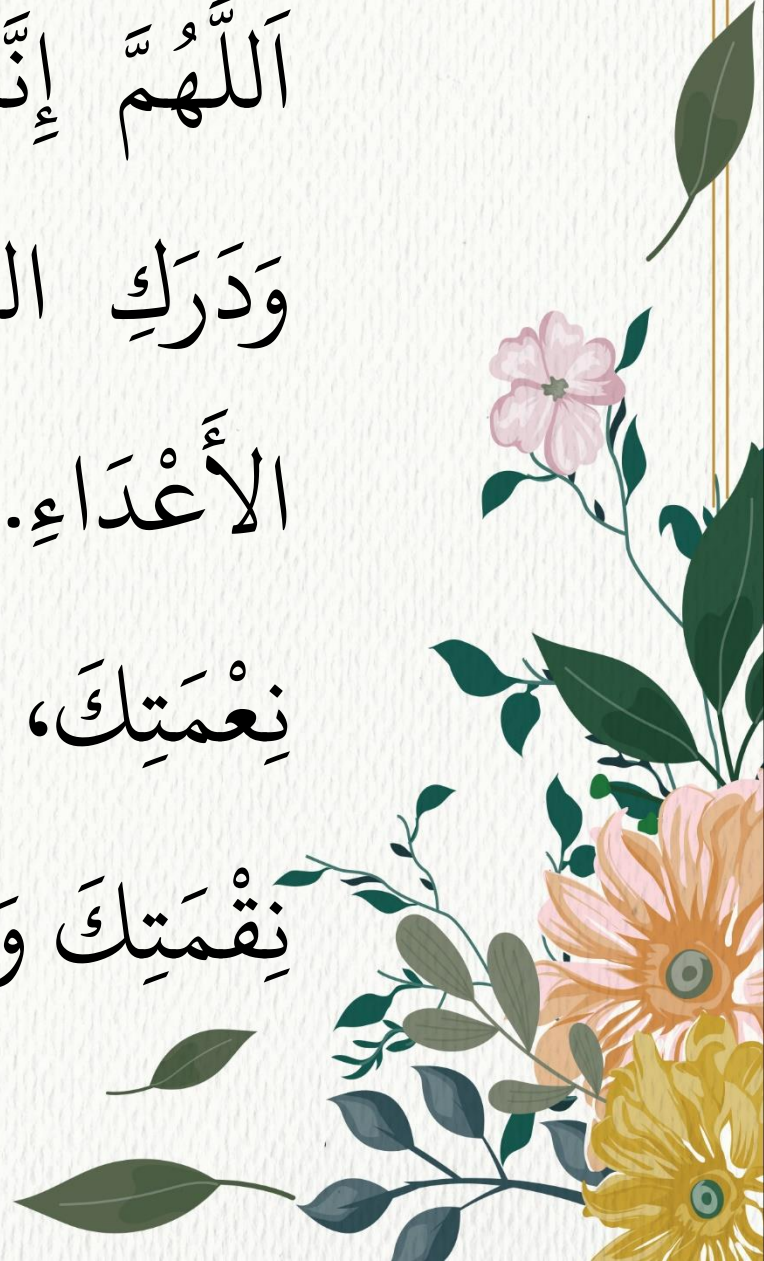 اَللَّهُمَّ
وَدَرَكِ
الأَعْدَاءِ.
نِعْمَتِكَ،
نِقْمَتِكَ